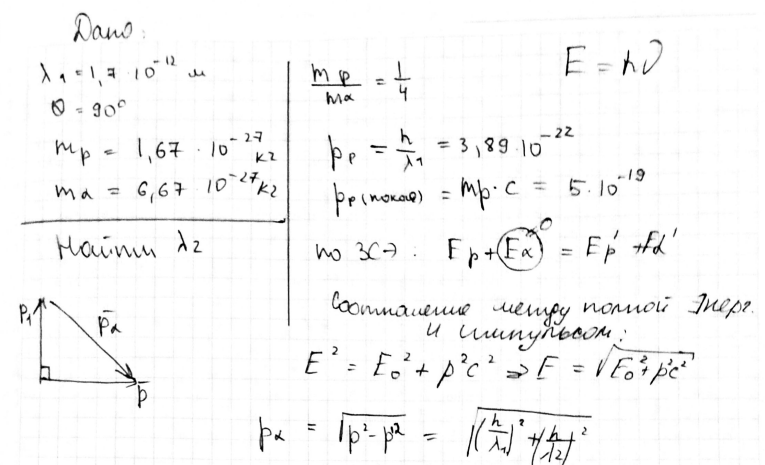 Дано:
λ₁ = 1,7 · 10⁻¹² м
θ = 90°
mp = 1,67 · 10⁻²⁷ кг
mα = 6,67 10⁻²⁷ кг
Найти λ₂
P₁
p̄α
p̄
mp/mα = 1/4
E = hν
pp = h/λ₁ = 3,89 · 10⁻²²
pp (покоя) = mp · c = 5 · 10⁻¹⁹
по ЗСЭ: Ep + Eα⁰ = Ep' + Eα'
Соотношение между полной Энерг.
и импульсом:
E² = E₀² + p²c² ⇒ E = √(E₀² + p²c²)
pα = √(p² - p'²) = √((h/λ₁)² + (h/λ₂)²)